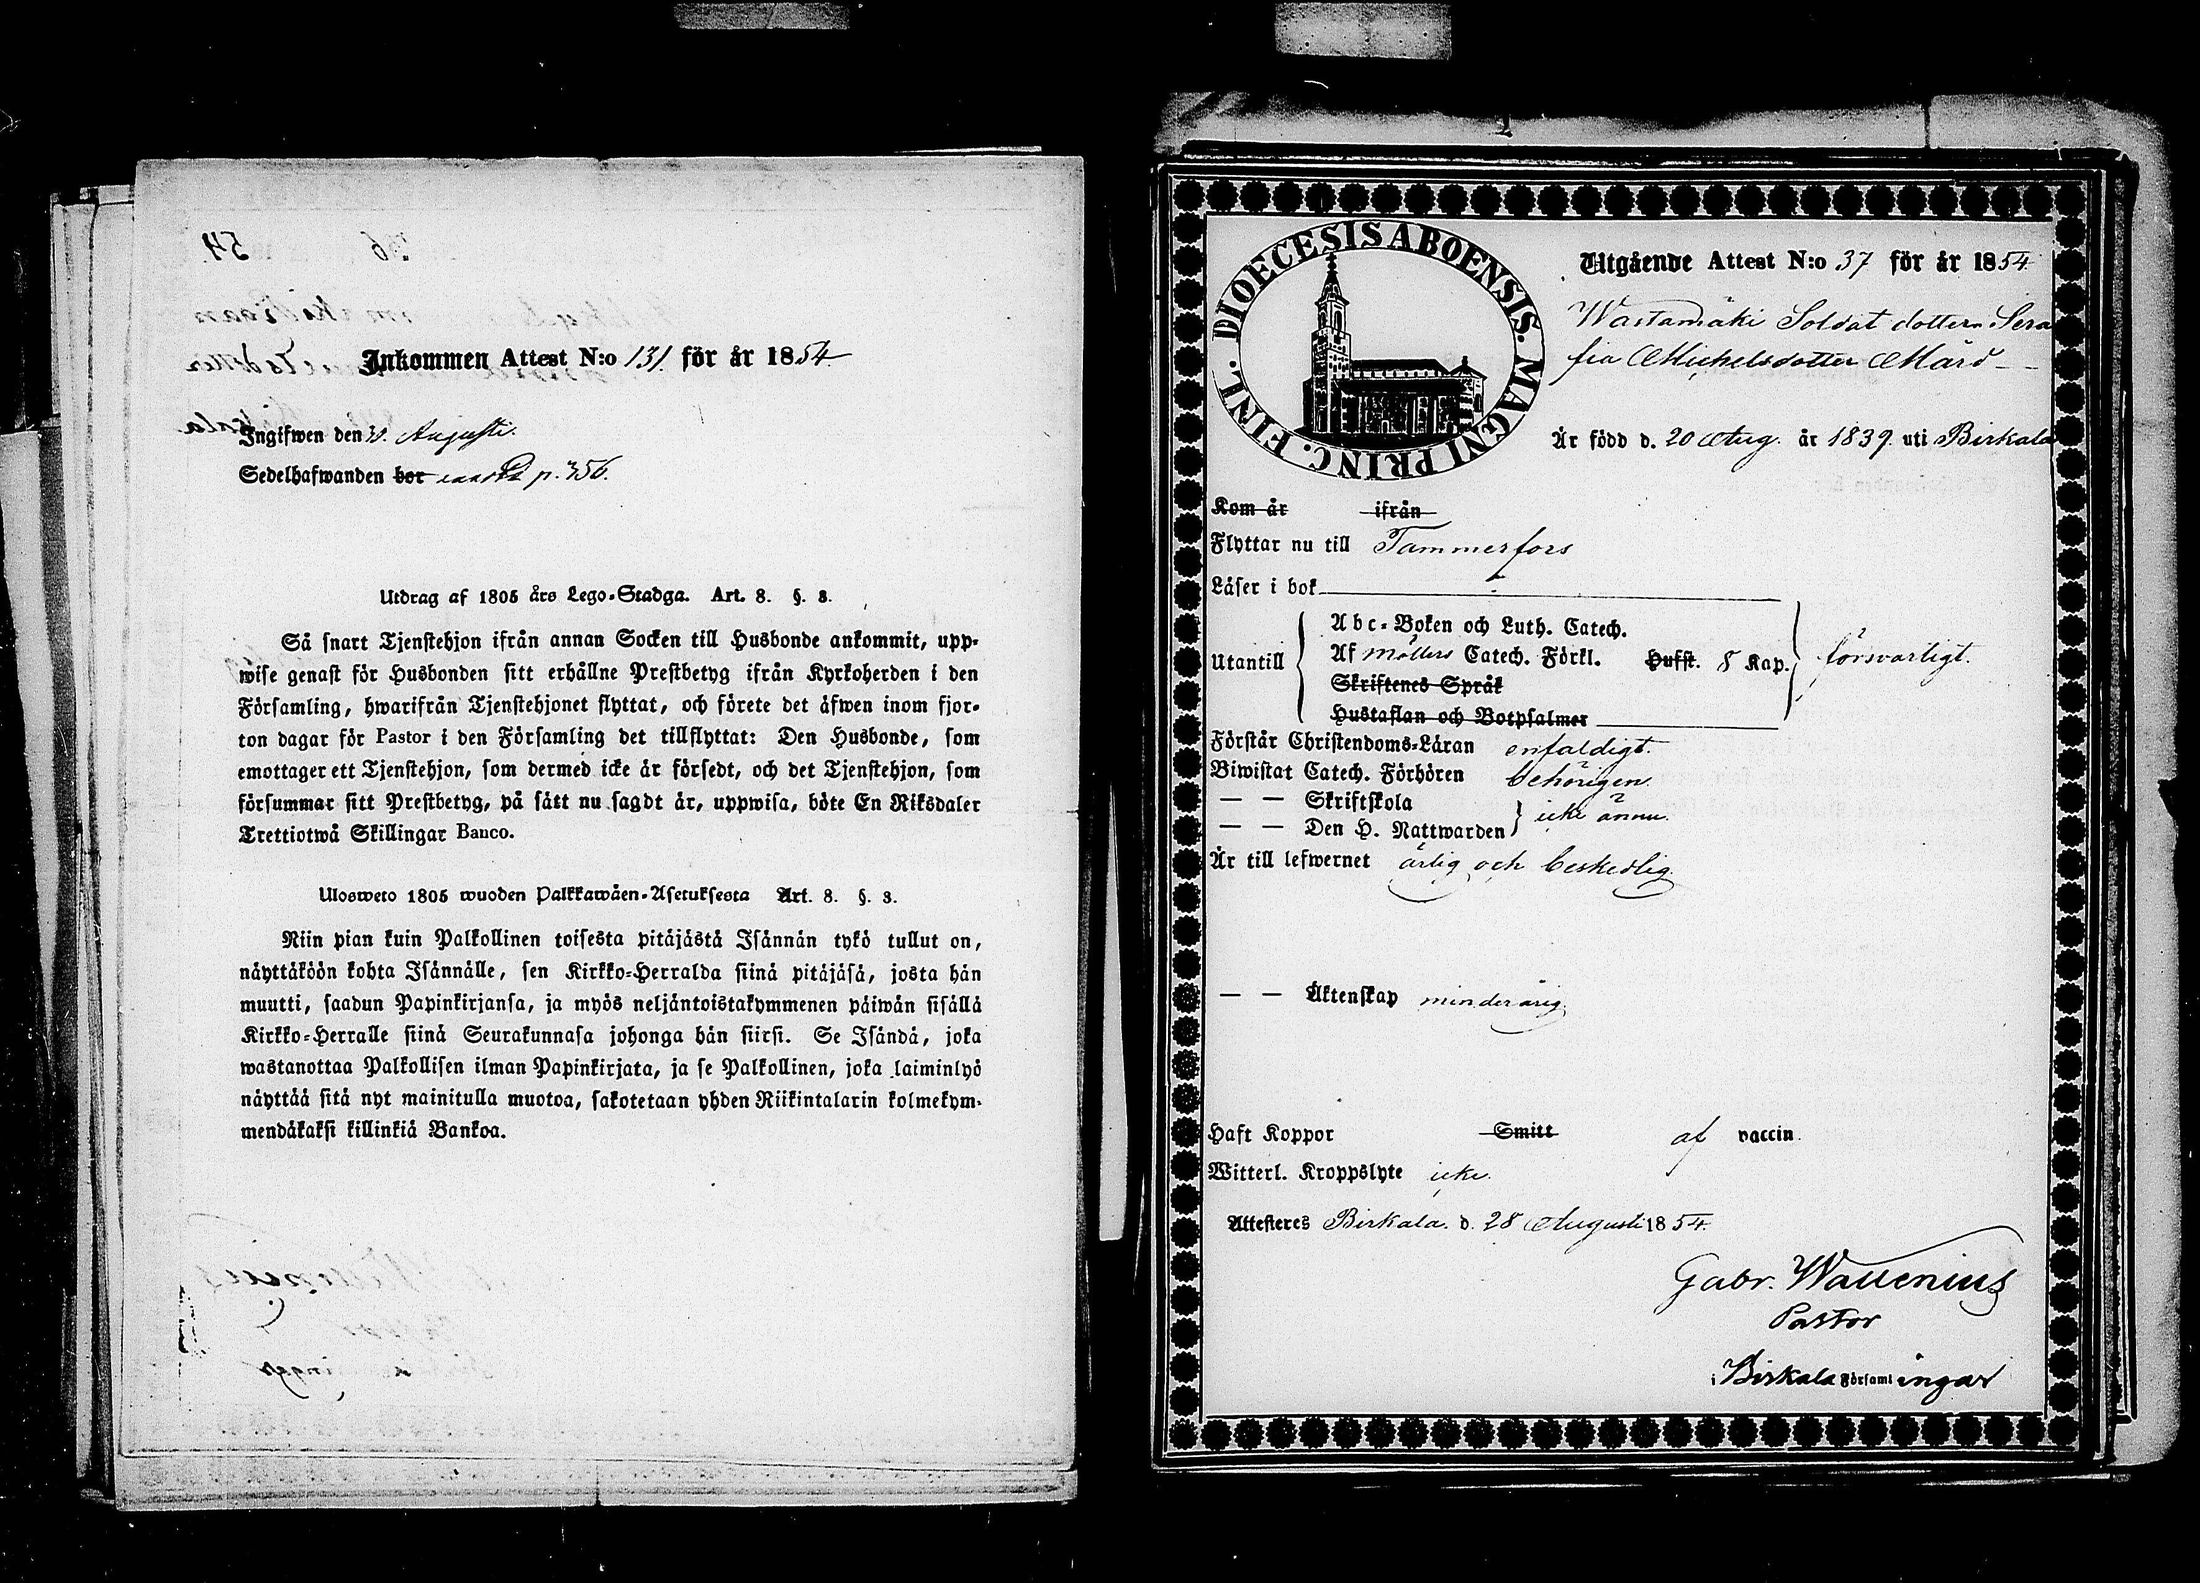 Inkommen Attest N:o 131. för år 1854.
Ingifwen den 30. Augusti.
Sedelhafwanden bor p. 356.
Utdrag af 1805 års Lego-Stadga. Art. 8. §. 3.
Så snart Tjenstehjon ifrån annan Socken till Husbonde ankommit, upp-
wise genast för Husbonden sitt erhållne Prestbetyg ifrån Kyrkoherden i den
Församling, hwarifrån Tjenstehjonet flyttat, och förete det äfwen inom fjor-
ton dagar för Pastor i den Församling det tillflyttat: Den Husbonde, som
emottager ett Tjenstehjon, som dermed icke är försedt, och det Tjenstehjon, som
försummar sitt Prestbetyg, på sätt nu sagdt är, uppwisa, böte En Riksdaler
Trettiotwå Skillingar Banco.
Ulosweto 1805 wuoden Palkkawäen-Asetuksesta Art. 8. §. 3.
Niin pian kuin Palkollinen toisesta pitäjästä Isännän tykö tullut on,
näyttäköön kohta Isännälle, sen Kirkko-Herralda siinä pitäjäsä, josta hän
muutti, saadun Papinkirjansa, ja myös neljäntoistakymmenen päiwän sisällä
Kirkko-Herralle siinä Seurakunnasa johonga hän siirsi. Se Isändä, joka
wastanottaa Palkollisen ilman Papinkirjata, ja se Palkollinen, joka laiminlyö
näyttää sitä nyt mainitulla muotoa, sakotetaan yhden Riikintalarin kolmekym-
mendäkaksi killinkiä Bankoa.
DIOECESIS ABOENSIS. MAGNI PRINC. FINL.
Utgående Attest N:o 37 för år 1854.
Wastamäki Soldat dottern Sera
fia Michelsdotter Mård
Är född d. 20 Aug. år 1839. uti Birkala
Kom år ifrån
Flyttar nu till Tammerfors
Läser i bok
Utantill
Abc-Boken och Luth. Catech.
Af Möllers Catech. Förkl. Hufst. 8 Kap. försvarligt.
Skriftenes Språk
Hustaflan och Botpsalmer
Förstår Christendoms-Läran enfaldigt.
Biwistat Catech. Förhören behörigen.
— — Skriftskola
— — Den H. Nattwarden icke ännu.
Är till lefwernet ärlig och beskedlig.
— — Äktenskap minderårig.
Haft Koppor Smitt af vaccin.
Witterl. Kroppslyte icke.
Attesteres Birkala d. 28 Augusti 1854.
Gabr. Wallenius
Pastor
i Birkala Församlingar